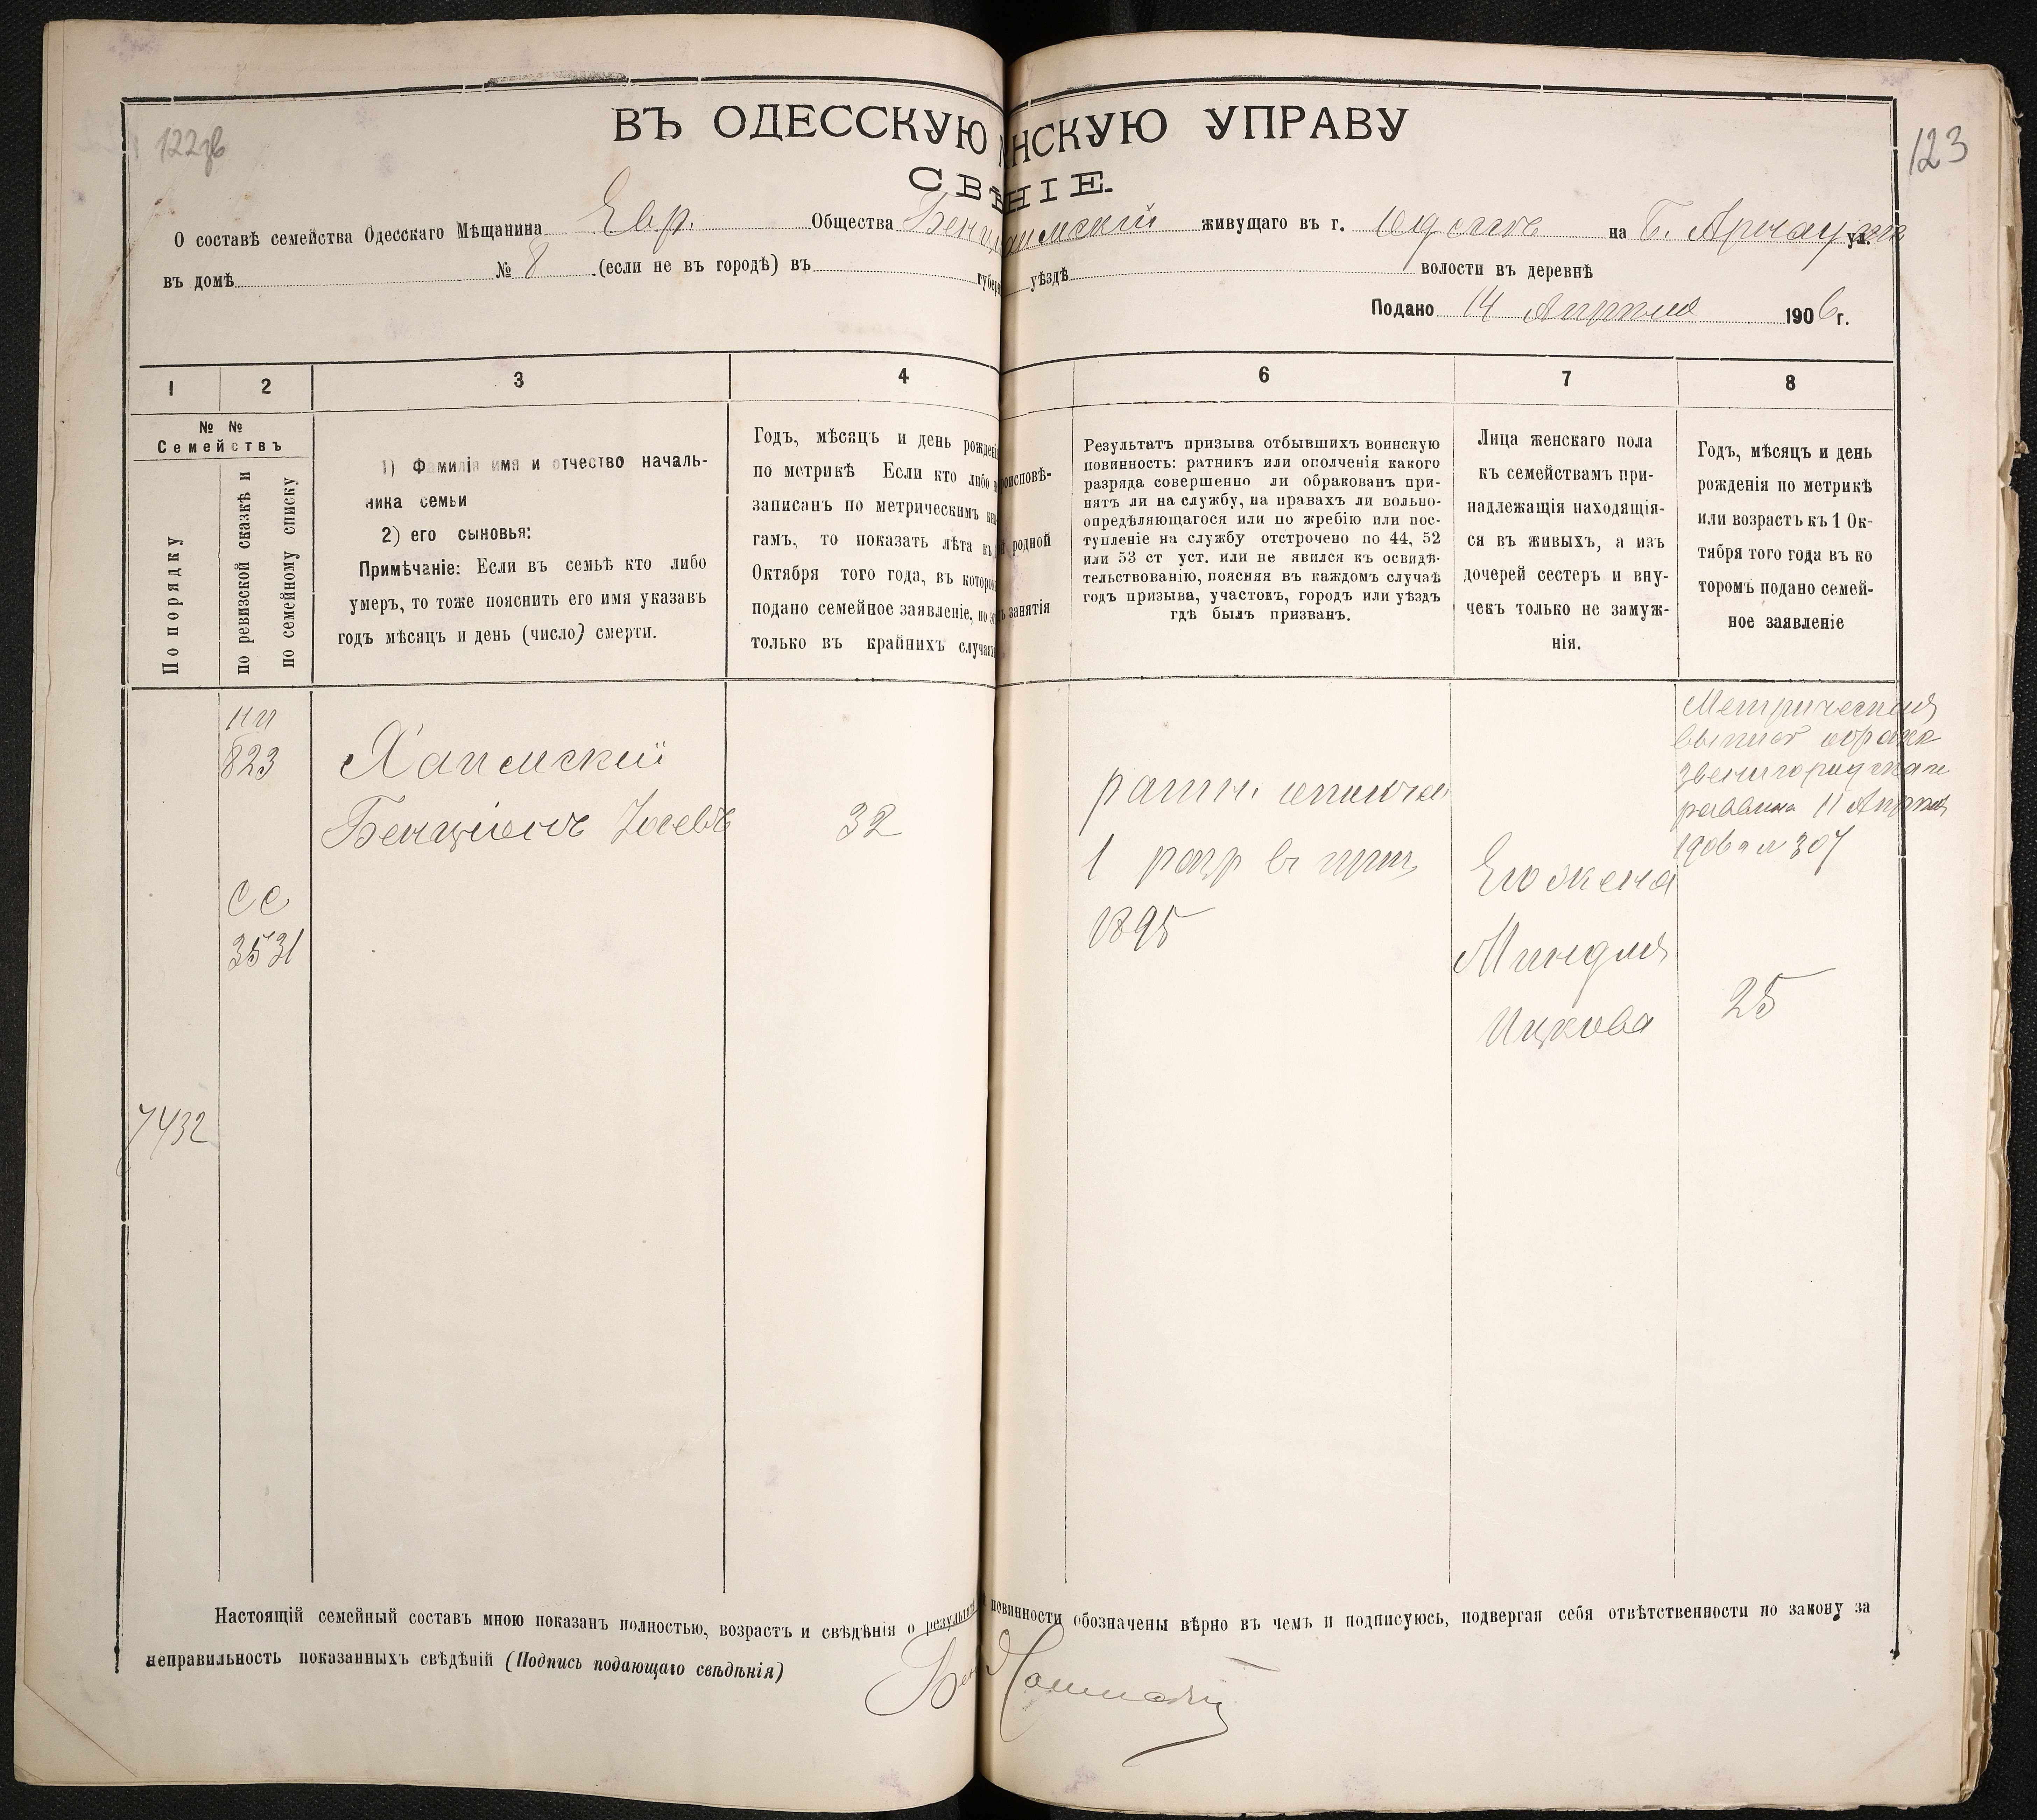 122зв
123
ВЪ ОДЕССКУЮ НСКУЮ УПРАВУ
СВѢНІЕ.
О составѣ семейства Одесскаго Мѣщанина Евр. Общества Бенц аимский живущаго въ г. Одессѣ на Б. Арнаутск ул.
въ домѣ № 8 (если не въ городѣ) въ губер уѣздѣ волости въ деревнѣ
Подано 14 Апреля 1906 г.
1 2 3 4 6 7 8
№ №
Семействъ
По порядку
по ревизской сказкѣ и
по семейному списку
1) Фамилія имя и отчество началь-
ника семьи
2) его сыновья:
Примѣчаніе: Если въ семьѣ кто либо
умеръ, то тоже пояснить его имя указавъ
годъ мѣсяцъ и день (число) смерти.
Годъ, мѣсяцъ и день рожден
по метрикѣ Если кто либо
записанъ по метрическимъ кни
гамъ, то показать лѣта къ
Октября того года, въ которо
подано семейное заявленіе, но
только въ крайнихъ случаях
оисповѣ-
родной
занятія
Результатъ призыва отбывшихъ воинскую
повинность: ратникъ или ополченія какого
разряда совершенно ли обракованъ при-
нятъ ли на службу, на правахъ ли вольно-
опредѣляющагося или по жребію или пос-
тупленіе на службу отстрочено по 44, 52
или 53 ст уст. или не явился къ освидѣ-
тельствованію, поясняя въ каждомъ случаѣ
годъ призыва, участокъ, городъ или уѣздъ
гдѣ былъ призванъ.
Лица женскаго пола
къ семействамъ при-
надлежащія находящія-
ся въ живыхъ, а изъ
дочерей сестеръ и вну-
чекъ только не замуж-
нія.
Годъ, мѣсяцъ и день
рожденія по метрикѣ
или возрастъ къ 1 Ок-
тября того года въ ко
торомъ подано семей-
ное заявленіе
823
Хаимский
Бенціонъ Іосевъ
32
се
3531
7432
ратн. ополчен
1 разр въ
1895
Его жена
Миндля
Ицкова
25
Метрическая
выпись о бракѣ
Звенигородскаго
раввина 11 Апреля
1906 г № 307
Настоящій семейный составъ мною показанъ полностью, возрастъ и свѣдѣнія о результат повинности обозначены вѣрно въ чемъ и подписуюсь, подвергая себя отвѣтственности по закону за
неправильность показанныхъ свѣдѣній (Подпись подающаго свѣдѣнія)